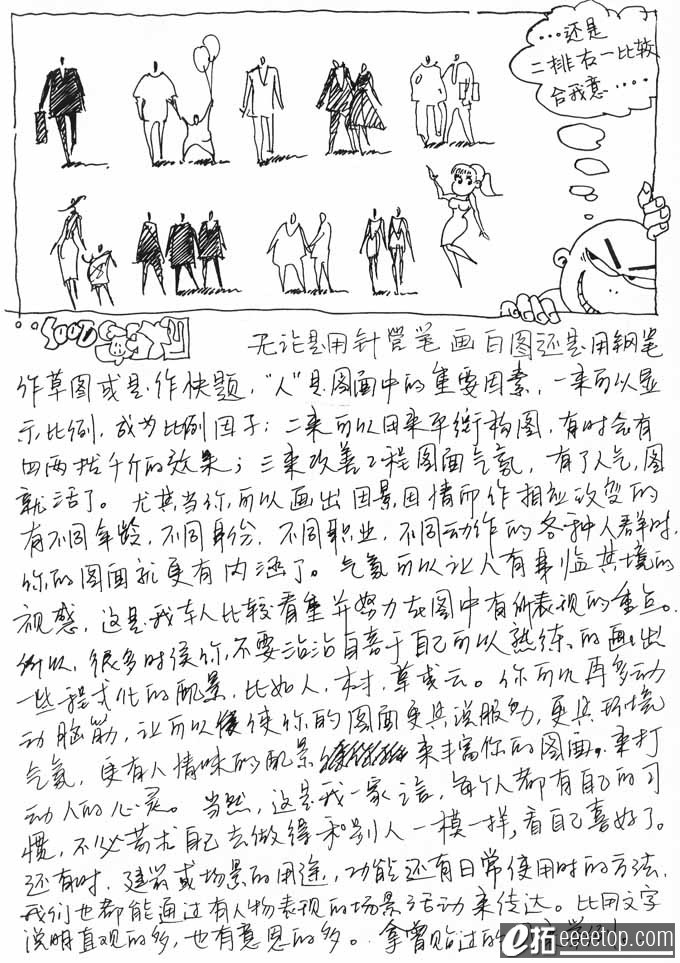 ...还是
二排右一比较
合我意....
无论是用针管笔画白图还是用钢笔
作草图或是作快题，"人"是图面中的重要因素，一来可以显
示比例，成为比例因子；二来可以用来平衡构图，有时会有
四两拨千斤的效果；三来改善工程图面气氛，有了人气，图
就活了。尤其当你可以画出因景因情而作相应改变的
有不同年龄，不同身份，不同职业，不同动作的各种人群时，
你的图面就更有内涵了。气氛可以让人有身临其境的
视感，这是我本人比较看重并努力在图中有所表现的重点。
所以，很多时侯你不要沾沾自喜于自己可以熟练的画出
一些程式化的配景，比如人，树，草或云。你可以再多动
动脑筋，让可以使你的图面更具说服力，更具环境
气氛，更有人情味的配景来丰富你的图面。来打
动人的心灵。当然，这是我一家之言，每个人都有自己的习
惯，不必苛求自己去做得和别人一模一样，看自己喜好了。
还有时，建筑或场景的用途，功能还有日常使用时的方法，
我们也都能通过有人物表现的场景活动来传达。比用文字
说明直观的多，也有意思的多。拿曾贴过的
e拓 eeeetop.com